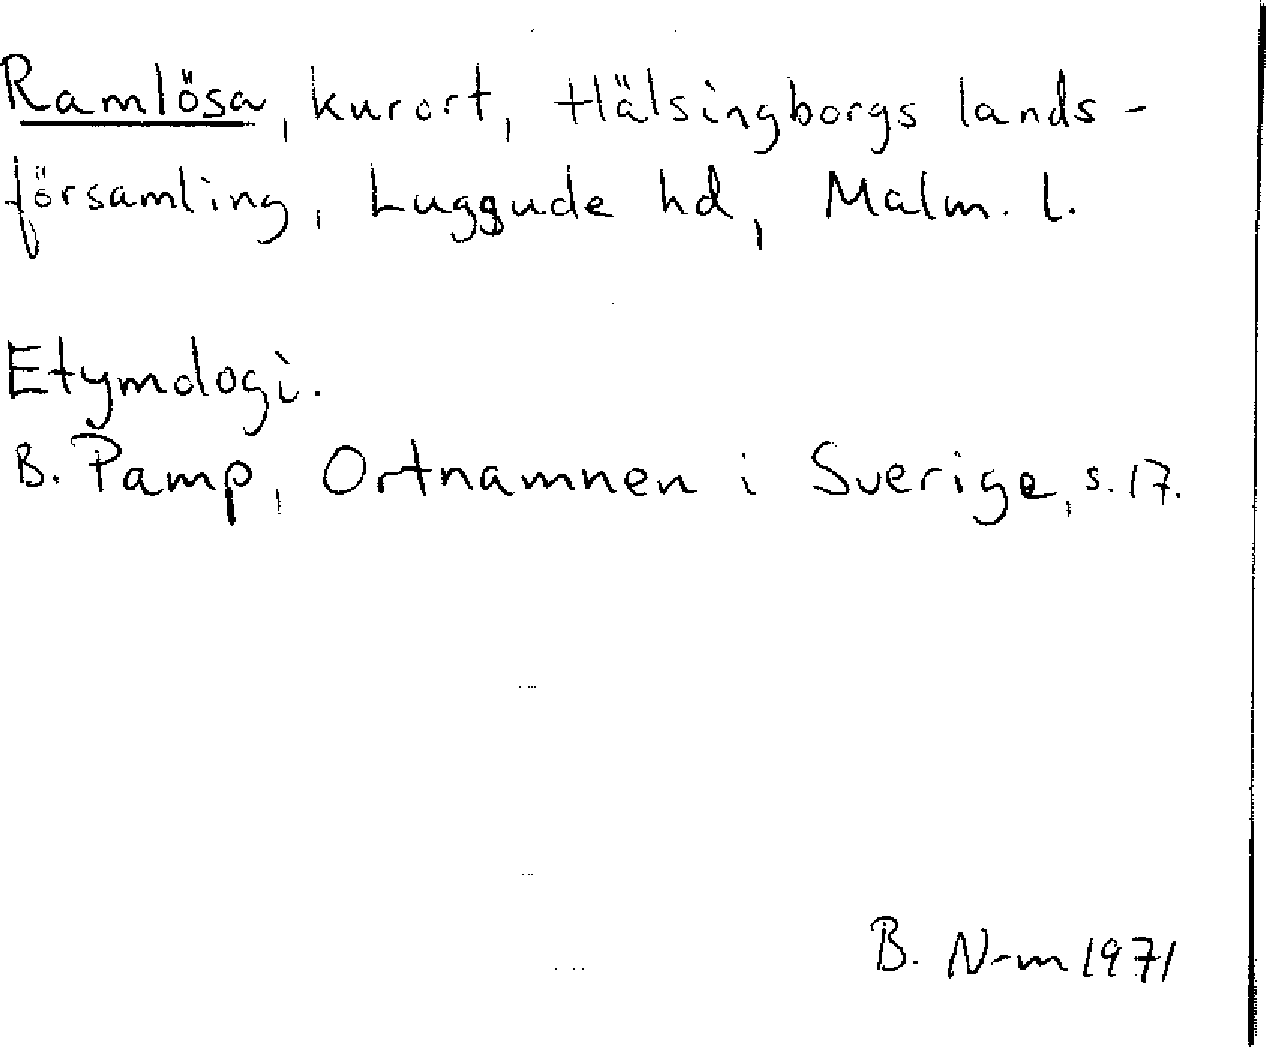 Ramlösa, kurort, Hälsingborgs lands-
församling, Luggude hd, Malm. l.
Etymologi.
B. Pamp, Ortnamnen i Sverige, s. 17.
B. N-m 1971